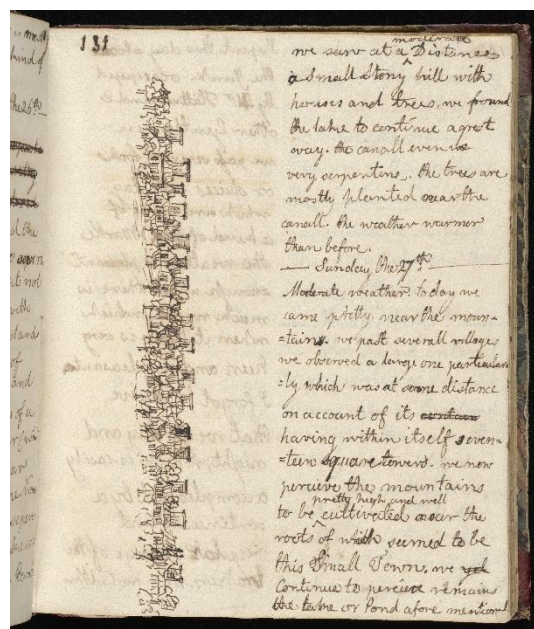 131
moderate
we saw at a Distance
a Small Stony hill with
houses and trees. we found
the lake to continue a great
way. the canall even is
very serpentine. the trees are
mostly planted near the
canall. the weather warmer
than before.
— Sunday, the 27th —
Moderate weather. to day we
came pretty near the moun-
=tains. we past severall villages
we observed a large one particular
=ly which was at some distance
on account of its
having within itself seven-
=teen square towers. we now
percieve the mountains
pretty high, and well
to be cultivated near the
roots of which seemed to be
this Small Town. we
Continue to percieve remains
the lake or Pond afore mention
the 26th